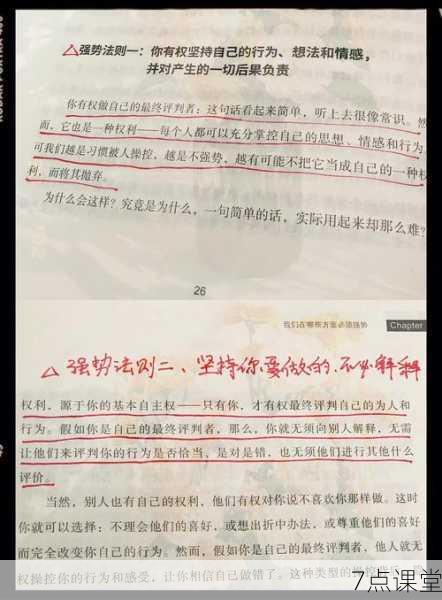 △强势法则一：你有权坚持自己的行为、想法和情感，
并对产生的一切后果负责
你有权做自己的最终评判者：这句话看起来简单，听上去很像常识。然
而，它也是一种权利——每个人都可以充分掌控自己的思想、情感和行为
可我们越是习惯被人操控，越是不强势，越有可能不把它当成自己的一种权
利，而将其抛弃。
为什么会这样？究竟是为什么，一句简单的话，实际用起来却那么难？
26
我们在哪些方面必须强势 Chapter
△强势法则二、坚持你要做的，不必解释
权利，源于你的基本自主权——只有你，才有权最终评判自己的为人和
行为。假如你是自己的最终评判者，那么，你就无须向别人解释，无需
让他们来评判你的行为是否恰当，是对是错，也无须他们进行其他什么
评价。
当然，别人也有自己的权利，他们有权对你说不喜欢你那样做。这时
你就可以选择：不理会他们的喜好，或想出折中办法，或尊重他们的喜好
而完全改变你自己的行为。然而，假如你是自己的最终评判者，他人就无
权操控你的行为和感受，让你相信自己做错了。这种类型的
7点课堂